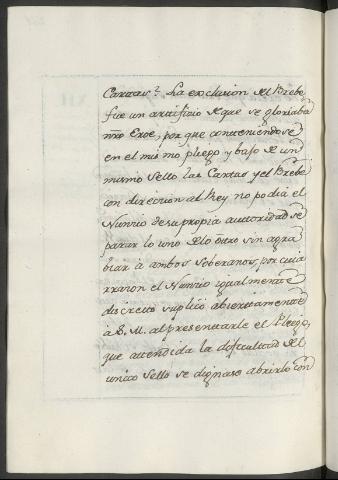 Cartas? La exclusion del Brebe
fue un artificio de que se gloriaba
nro Eroe, por que conteniendose
en el mismo pliego y bajo de un
mismo Sello las Cartas y el Brebe
con direccion al Rey no podia el
Nuncio de su propia autoridad se
parar lo uno de lo otro sin agra
biar a ambos Soberanos, por cuia
rrazon el Nuncio igualmente
discreto suplicó abiertamente
à S. M. al presentarle el Pliego,
que attendida la dificultad del
unico Sello se dignase abrirlo con